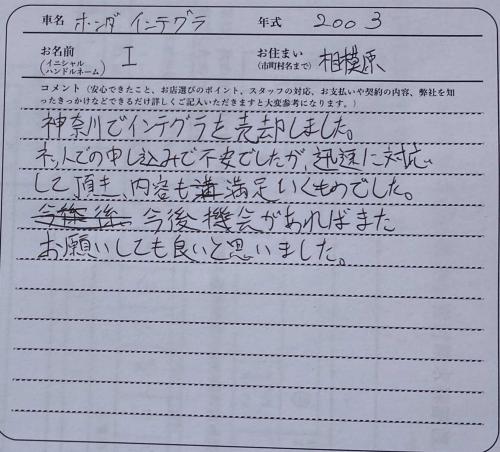 車名 ホンダ インテグラ 年式 2003
お名前 (イニシャル ハンドルネーム) I お住まい (市町村名まで) 相模原
コメント(安心できたこと、お店選びのポイント、スタッフの対応、お支払いや契約の内容、弊社を知
ったきっかけなどできるだけ詳しくご記入いただきますと大変参考になります。)
神奈川でインテグラを売却しました。
ネットでの申し込みで不安でしたが、迅速に対応
して頂き、内容も満足いくものでした。
今後機会があればまた
お願いしても良いと思いました。